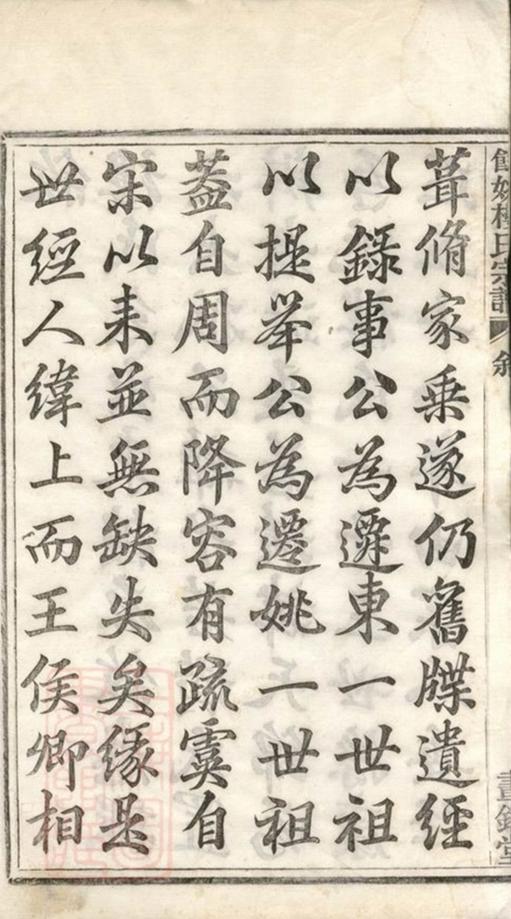 葺脩家乗遂仍舊牒遺經
以錄事公為遷東一世祖
以提举公為遷姚一世祖
葢自周而降容有疏虞自
宋以来並無缺失矣緣是
世經人緯上而王侯卿相